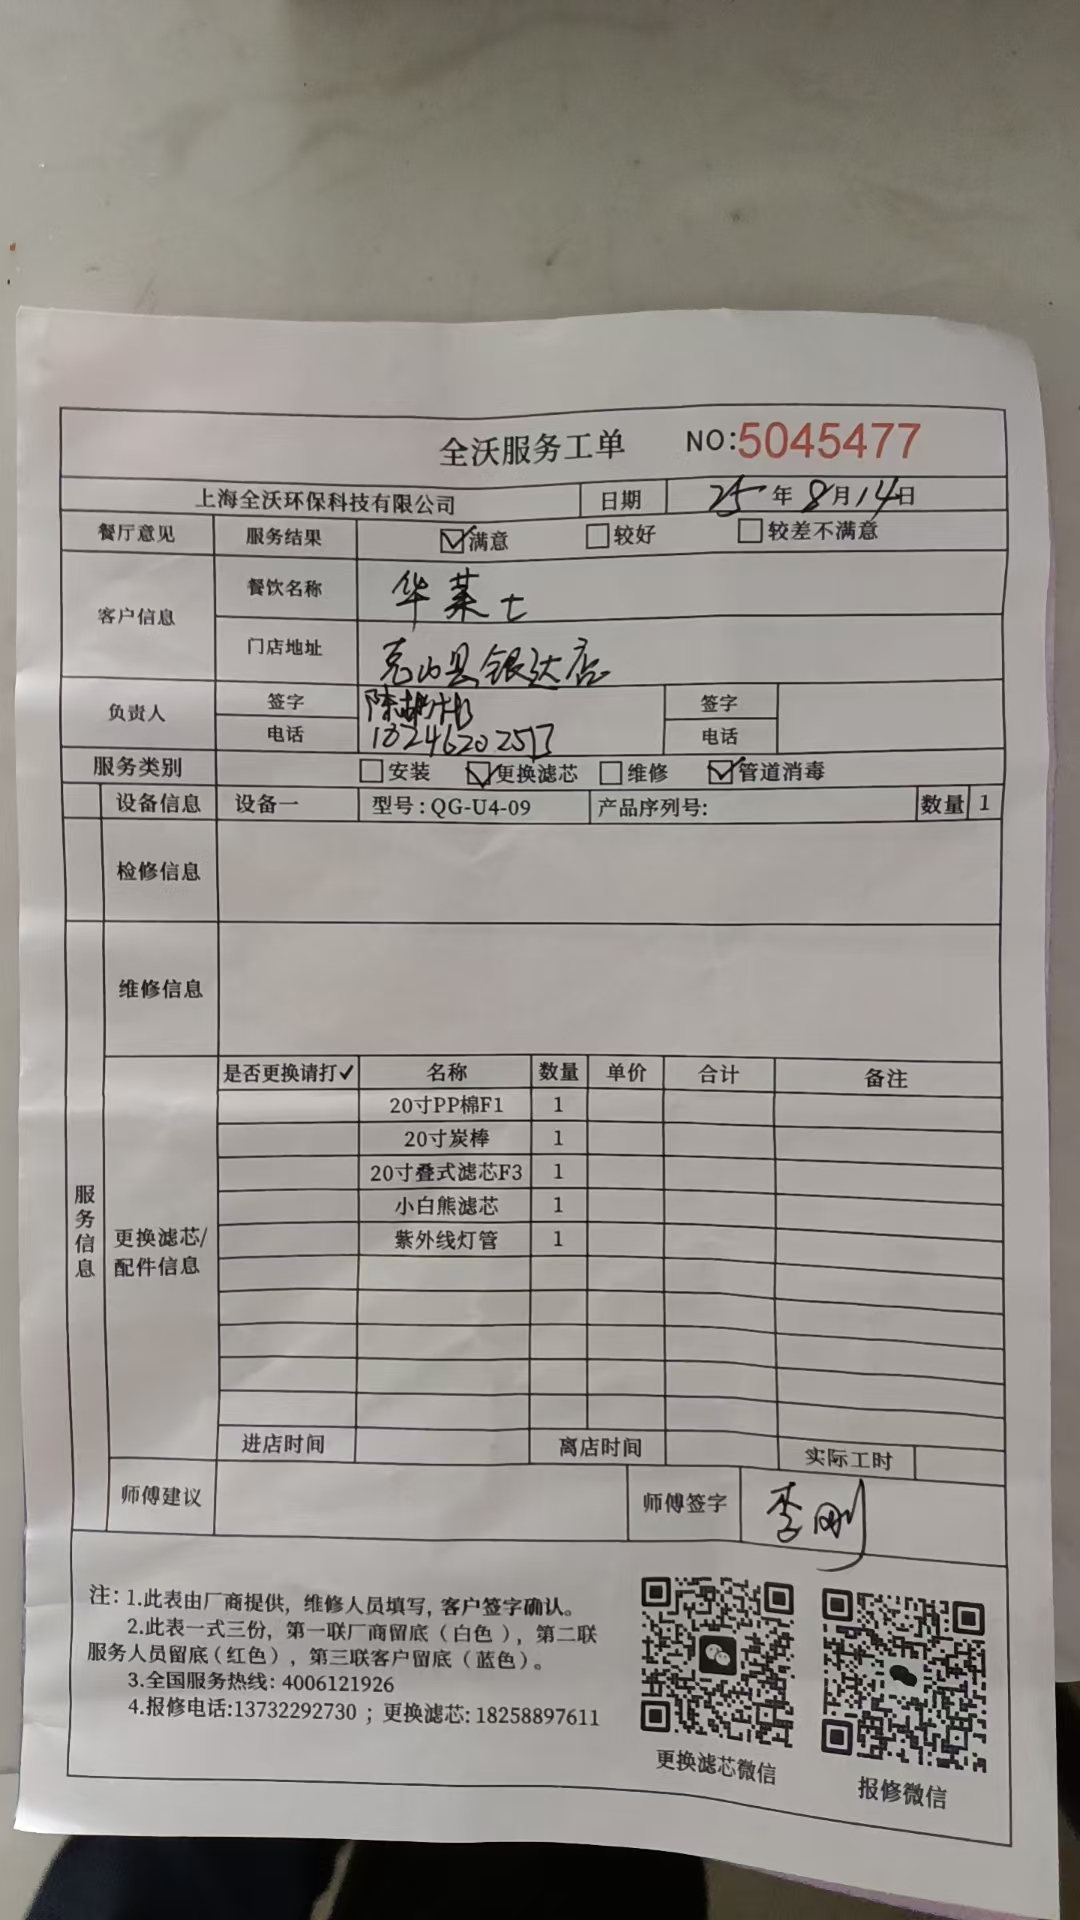 全沃服务工单 NO:5045477
上海全沃环保科技有限公司 日期 25年8月14日
餐厅意见 服务结果 ☑满意 □较好 □较差不满意
客户信息 餐饮名称 华莱士
门店地址 克山县银达店
负责人 签字 陈 签字
电话 电话
服务类别 □安装 ☑更换滤芯 □维修 ☑管道消毒
设备信息 设备一 型号:QG-U4-09 产品序列号: 数量 1
检修信息
维修信息
服务信息
更换滤芯/配件信息
是否更换请打✓ 名称 数量 单价 合计 备注
20寸PP棉F1 1
20寸炭棒 1
20寸叠式滤芯F3 1
小白熊滤芯 1
紫外线灯管 1
进店时间 离店时间 实际工时
师傅建议 师傅签字 李刚
注:1.此表由厂商提供,维修人员填写,客户签字确认。
2.此表一式三份,第一联厂商留底(白色),第二联
服务人员留底(红色),第三联客户留底(蓝色)。
3.全国服务热线:4006121926
4.报修电话:13732292730;更换滤芯:18258897611
更换滤芯微信
报修微信